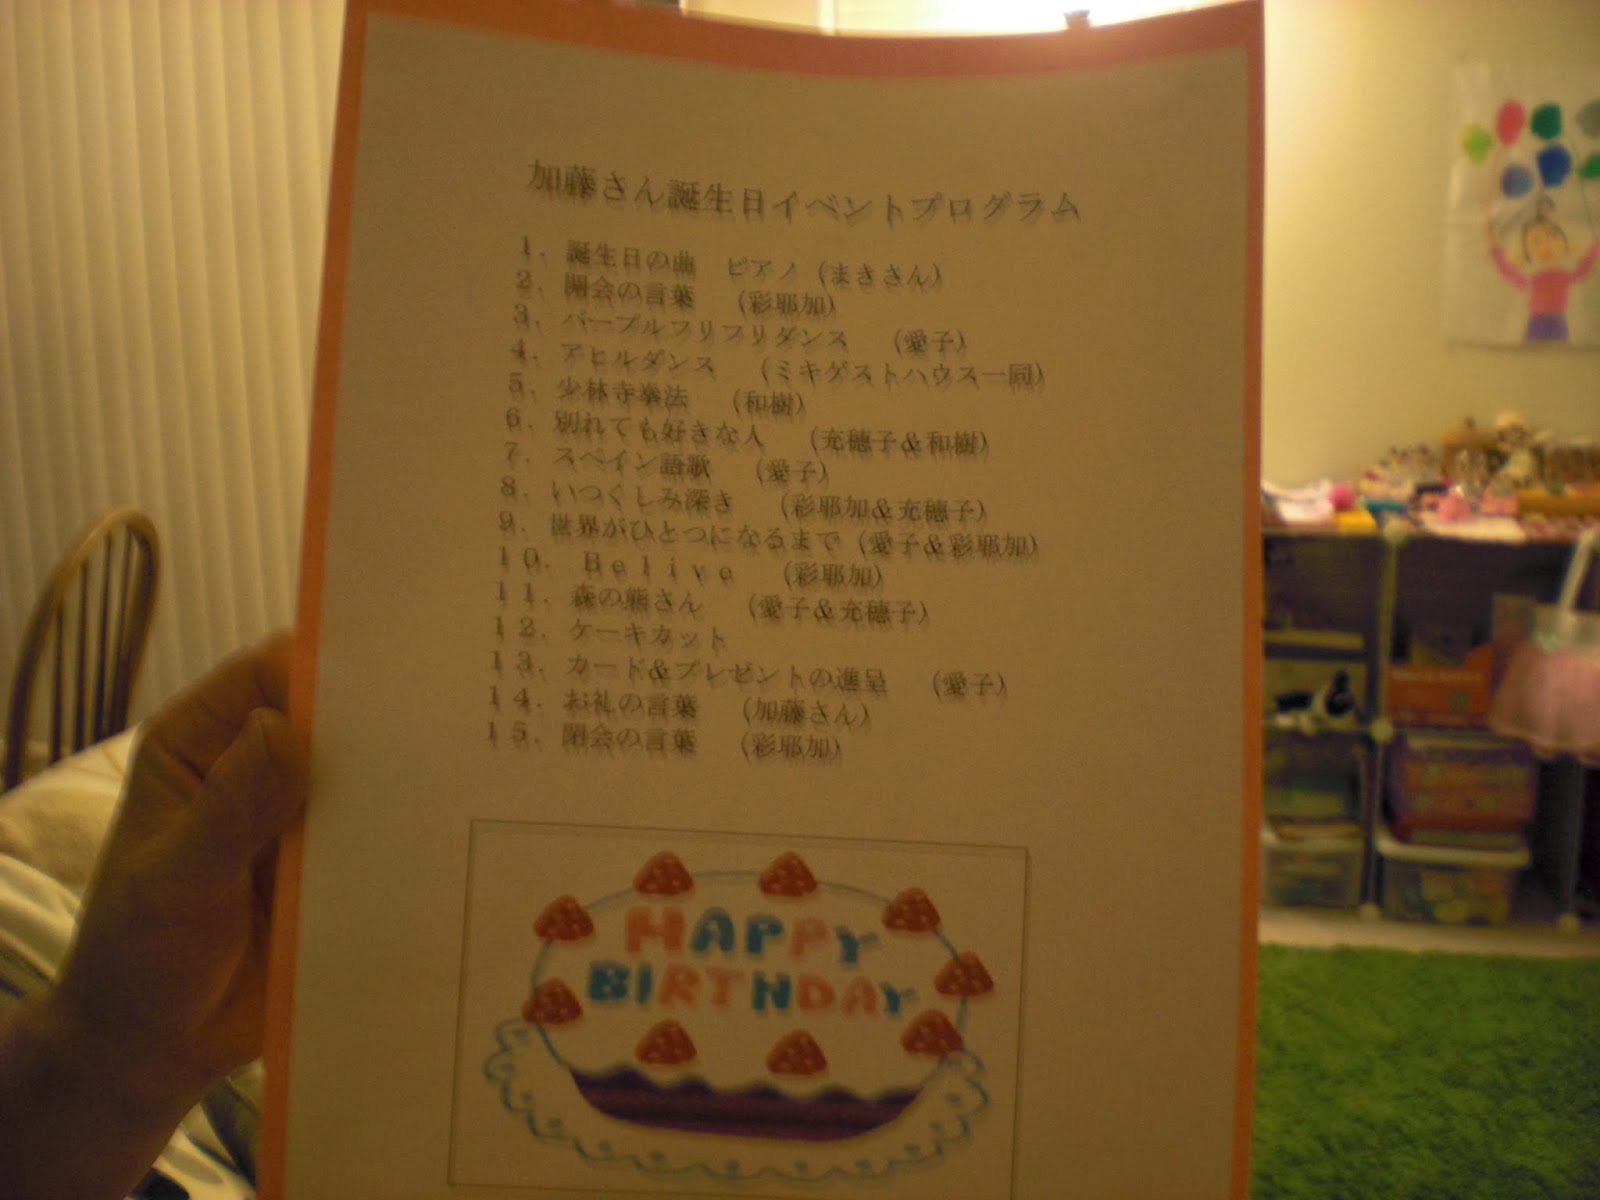 加藤さん誕生日イベントプログラム
１．誕生日の曲　ピアノ（まきさん）
２．開会の言葉　（彩耶加）
３．パープルフリフリダンス　（愛子）
４．アヒルダンス　（ミキゲストハウス一同）
５．少林寺拳法　（和樹）
６．別れても好きな人　（充穂子＆和樹）
７．スペイン語歌　（愛子）
８．いつくしみ深き　（彩耶加＆充穂子）
９．世界がひとつになるまで（愛子＆彩耶加）
１０．Ｂｅｌｉｖｅ　（彩耶加）
１１．森の熊さん　（愛子＆充穂子）
１２．ケーキカット
１３．カード＆プレゼントの進呈　（愛子）
１４．お礼の言葉　（加藤さん）
１５．閉会の言葉　（彩耶加）
HAPPY
BIRTHDAY